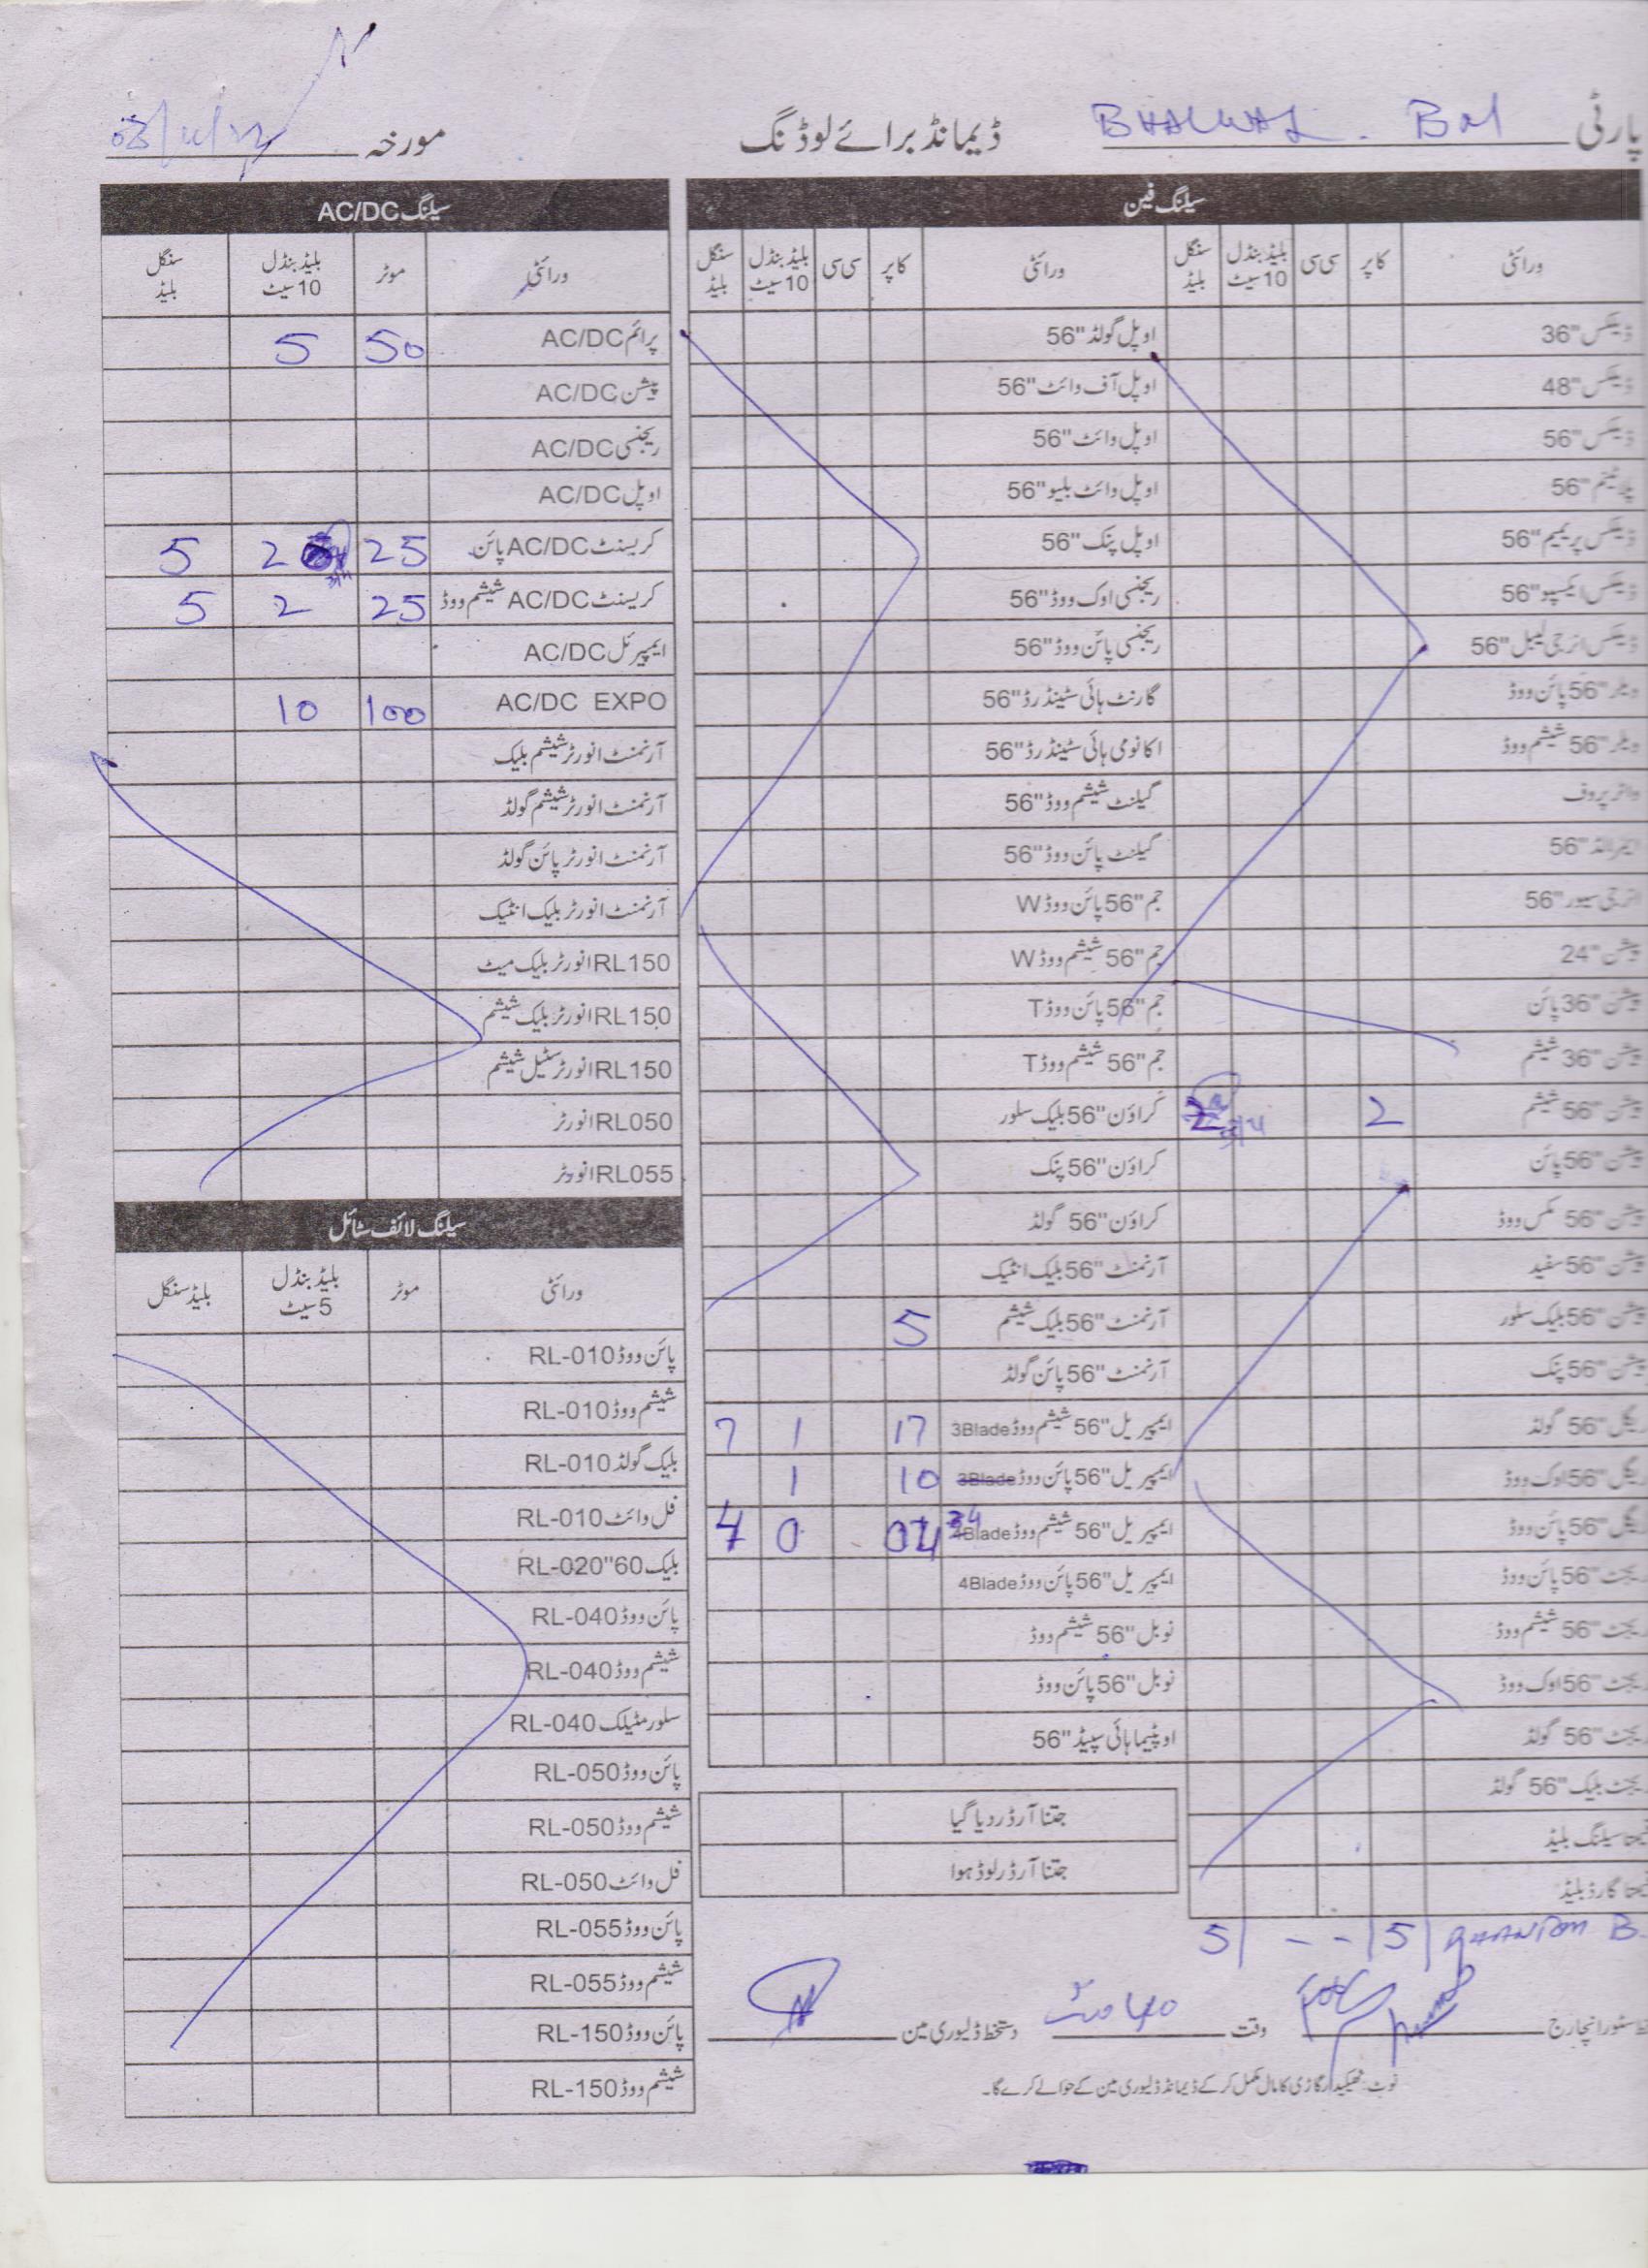 پارٹی BHALWAL . BM ڈیمانڈ برائے لوڈنگ مورخہ
سیلنگ فین
ورائٹی کاپر سی سی بلیڈ بنڈل 10 سیٹ سنگل بلیڈ
ڈیلکس "36
ڈیلکس "48
ڈیلکس "56
پلاٹینم "56
ڈیلکس پریمیم "56
ڈیلکس ایکسپو "56
ڈیلکس انرجی لیبل "56
"56 پائن ووڈ
"56 شیشم ووڈ
واٹر پروف
ایمرالڈ "56
انرجی سیور "56
پیشن "24
پیشن "36 پائن
پیشن "36 شیشم
پیشن "56 شیشم 2 2
پیشن "56 پائن
پیشن "56 مکس ووڈ
پیشن "56 سفید
پیشن "56 بلیک سلور
پیشن "56 پنک
ریگل "56 گولڈ
ریگل "56 اوک ووڈ
ریگل "56 پائن ووڈ
ریجنٹ "56 پائن ووڈ
ریجنٹ "56 شیشم ووڈ
ریجنٹ "56 اوک ووڈ
ریجنٹ "56 گولڈ
ریجنٹ بلیک "56 گولڈ
سیلنگ بلیڈ
گارڈ بلیڈ
5 - - 5 B.
ورائٹی کاپر سی سی بلیڈ بنڈل 10 سیٹ سنگل بلیڈ
اوپل گولڈ "56
اوپل آف وائٹ "56
اوپل وائٹ "56
اوپل وائٹ بلیو "56
اوپل پنک "56
ریجنسی اوک ووڈ "56
ریجنسی پائن ووڈ "56
گارنٹ ہائی سٹینڈرڈ "56
اکانومی ہائی سٹینڈرڈ "56
گیلنٹ شیشم ووڈ "56
گیلنٹ پائن ووڈ "56
جم "56 پائن ووڈ W
جم "56 شیشم ووڈ W
جم "56 پائن ووڈ T
جم "56 شیشم ووڈ T
کراؤن "56 بلیک سلور
کراؤن "56 پنک
کراؤن "56 گولڈ
آرنمنٹ "56 بلیک انٹیک
آرنمنٹ "56 بلیک شیشم 5
آرنمنٹ "56 پائن گولڈ
ایمپیریل "56 شیشم ووڈ 3Blade 17 1 7
ایمپیریل "56 پائن ووڈ 3Blade 10 1
ایمپیریل "56 شیشم ووڈ 4Blade 04 0 4
ایمپیریل "56 پائن ووڈ 4Blade
نوبل "56 شیشم ووڈ
نوبل "56 پائن ووڈ
اوپٹیما ہائی سپیڈ "56
جتنا آرڈر دیا گیا
جتنا آرڈر لوڈ ہوا
سیلنگ AC/DC
ورائٹی موٹر بلیڈ بنڈل 10 سیٹ سنگل بلیڈ
پرائم AC/DC 50 5
پیشن AC/DC
ریجنسی AC/DC
اوپل AC/DC
کریسنٹ AC/DC پائن 25 2 5
کریسنٹ AC/DC شیشم ووڈ 25 2 5
ایمپیرئل AC/DC
AC/DC EXPO 100 10
آرنمنٹ انورٹر شیشم بلیک
آرنمنٹ انورٹر شیشم گولڈ
آرنمنٹ انورٹر پائن گولڈ
آرنمنٹ انورٹر بلیک انٹیک
RL150 انورٹر بلیک میٹ
RL150 انورٹر بلیک شیشم
RL150 انورٹر سٹیل شیشم
RL050 انورٹر
RL055 انورٹر
سیلنگ لائف سٹائل
ورائٹی موٹر بلیڈ بنڈل 5 سیٹ بلیڈ سنگل
پائن ووڈ RL-010
شیشم ووڈ RL-010
بلیک گولڈ RL-010
فل وائٹ RL-010
بلیک 60"RL-020
پائن ووڈ RL-040
شیشم ووڈ RL-040
سلور مٹیلک RL-040
پائن ووڈ RL-050
شیشم ووڈ RL-050
فل وائٹ RL-050
پائن ووڈ RL-055
شیشم ووڈ RL-055
پائن ووڈ RL-150
شیشم ووڈ RL-150
سٹور انچارج وقت دستخط ڈلیوری مین
نوٹ: ٹھیکیدار گاڑی کا مال مکمل کر کے ڈیمانڈ ڈلیوری مین کے حوالے کرے گا۔